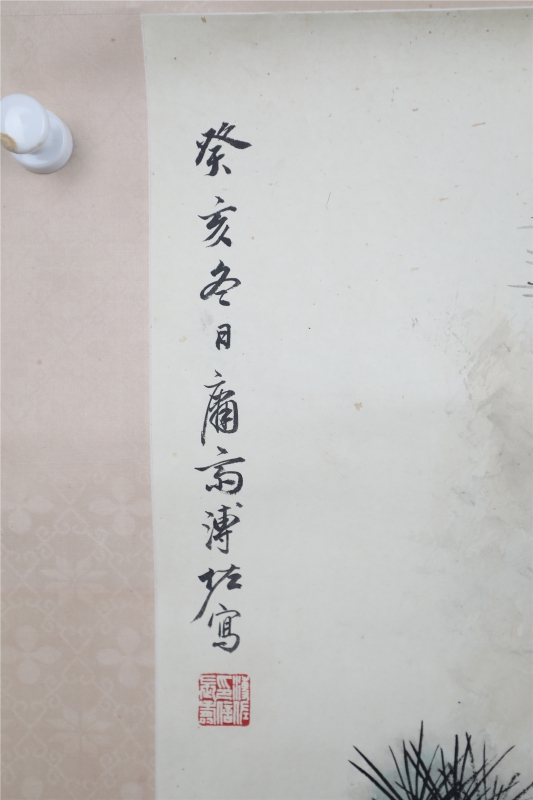 癸亥冬日庸斋溥佐寫